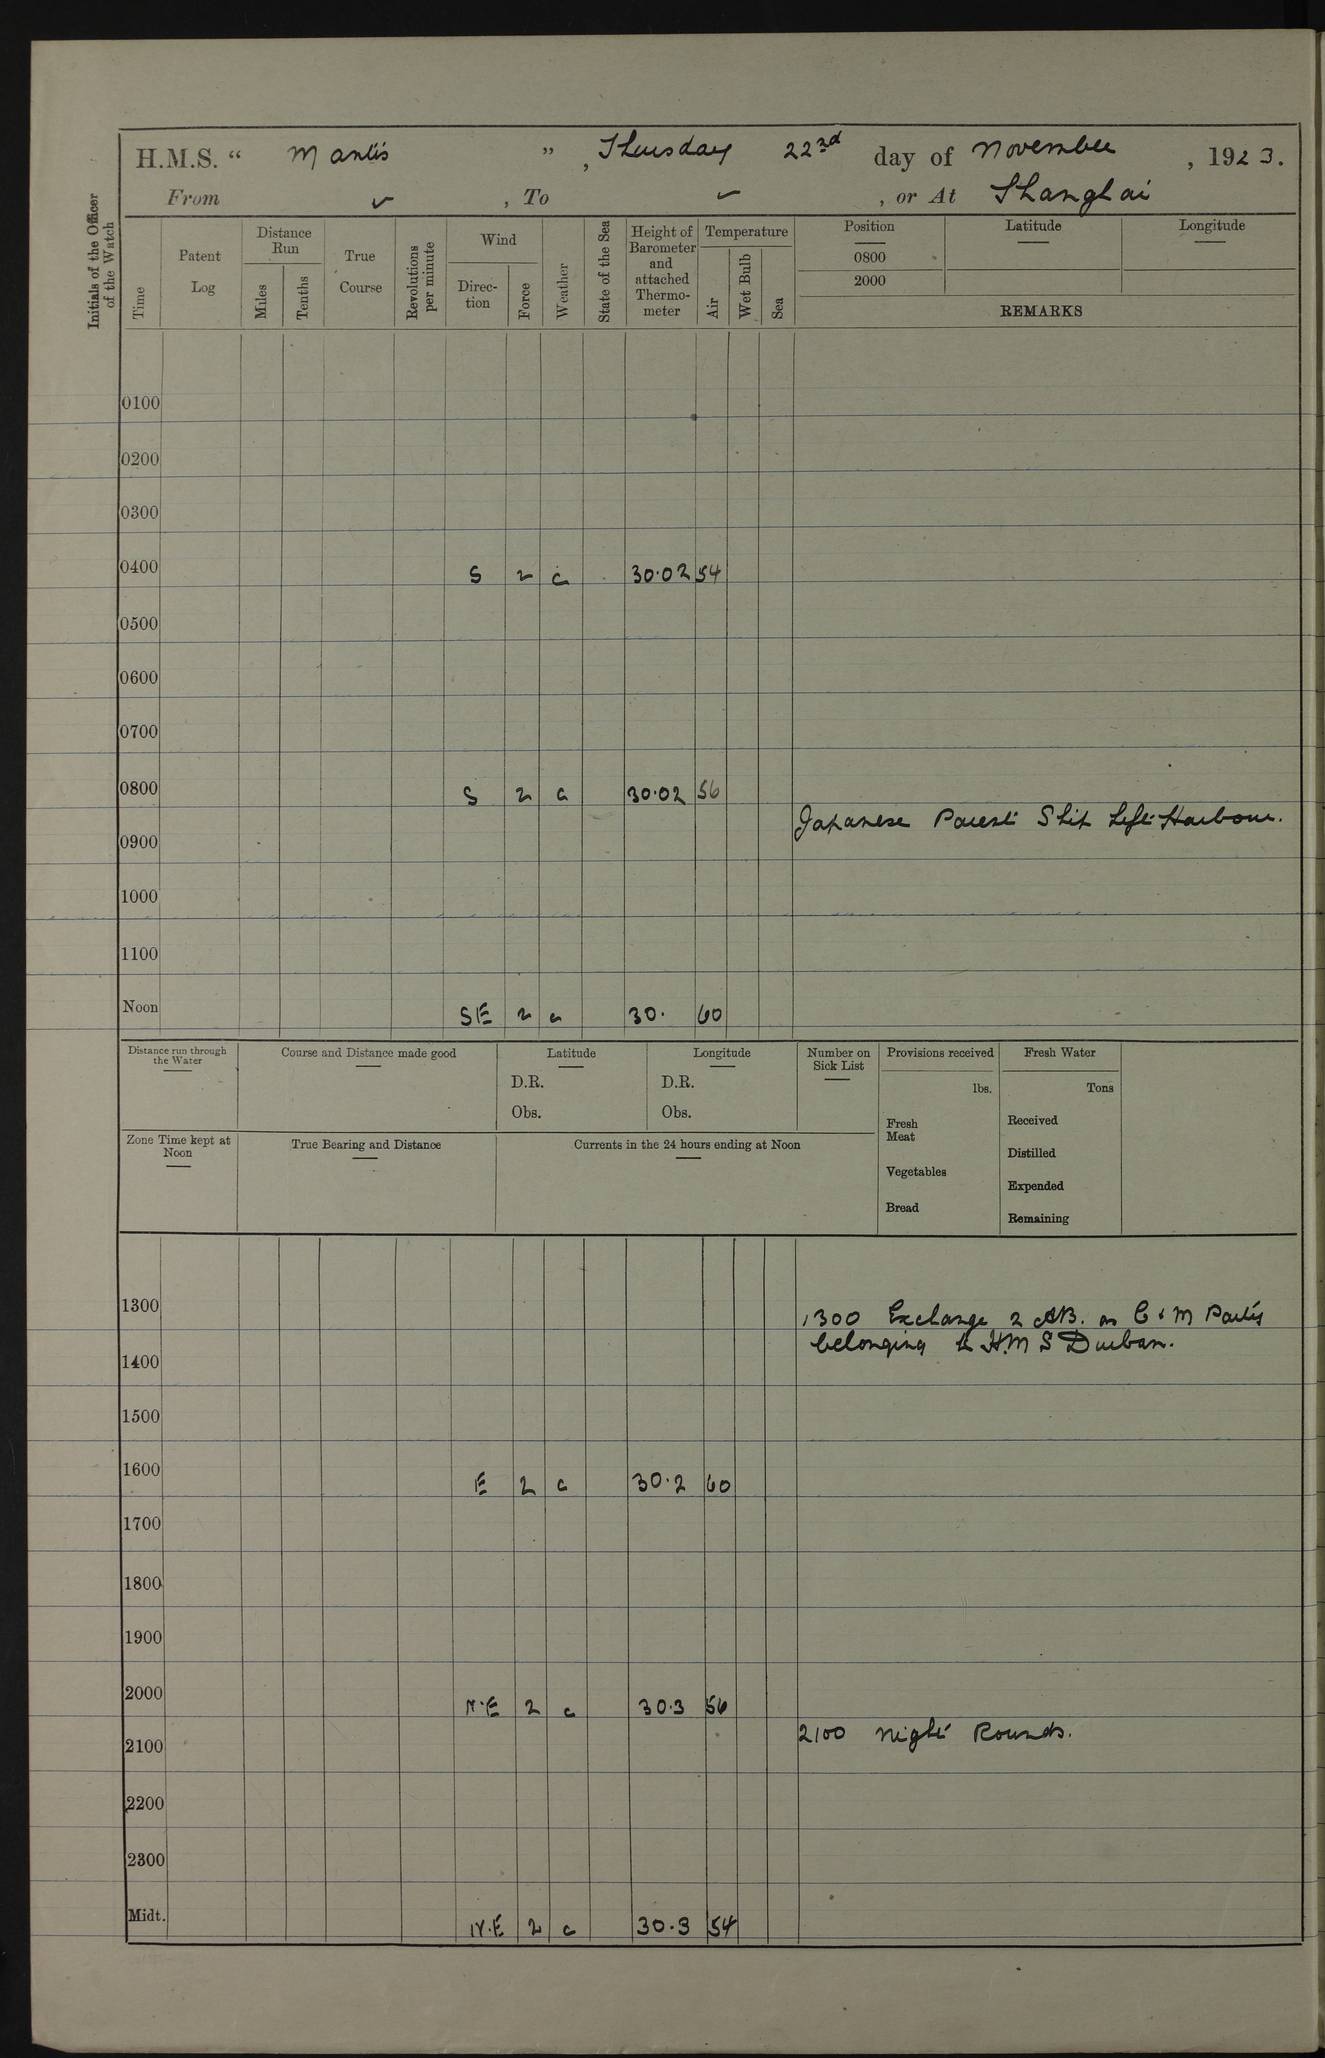 H.M.S. “ Mantis ” , Thursday 22nd day of November , 1923.
From ✓ , To ✓ , or At Shanghai
Initials of the Officer of the Watch
Time
Patent Log
Distance Run
Miles
Tenths
True Course
Revolutions per minute
Wind
Direc-tion
Force
Weather
State of the Sea
Height of Barometer and attached Thermo-meter
Temperature
Air
Wet Bulb
Sea
Position
Latitude
Longitude
0800
2000
REMARKS
0100
0200
0300
0400 S 2 c 30.02 54
0500
0600
0700
0800 S 2 c 30.02 56
Japanese Ship Left Harbour.
0900
1000
1100
Noon SE 2 c 30. 60
Distance run through the Water
Course and Distance made good
Latitude
D.R.
Obs.
Longitude
D.R.
Obs.
Number on Sick List
Provisions received
lbs.
Fresh Meat
Vegetables
Bread
Fresh Water
Tons
Received
Distilled
Expended
Remaining
Zone Time kept at Noon
True Bearing and Distance
Currents in the 24 hours ending at Noon
1300
1300 Exchange 2 AB. on C & M Party
belonging to H.M S Durban.
1400
1500
1600 E 2 c 30.2 60
1700
1800
1900
2000 N.E 2 c 30.3 56
2100 Night Rounds.
2100
2200
2300
Midt. N.E 2 c 30.3 54